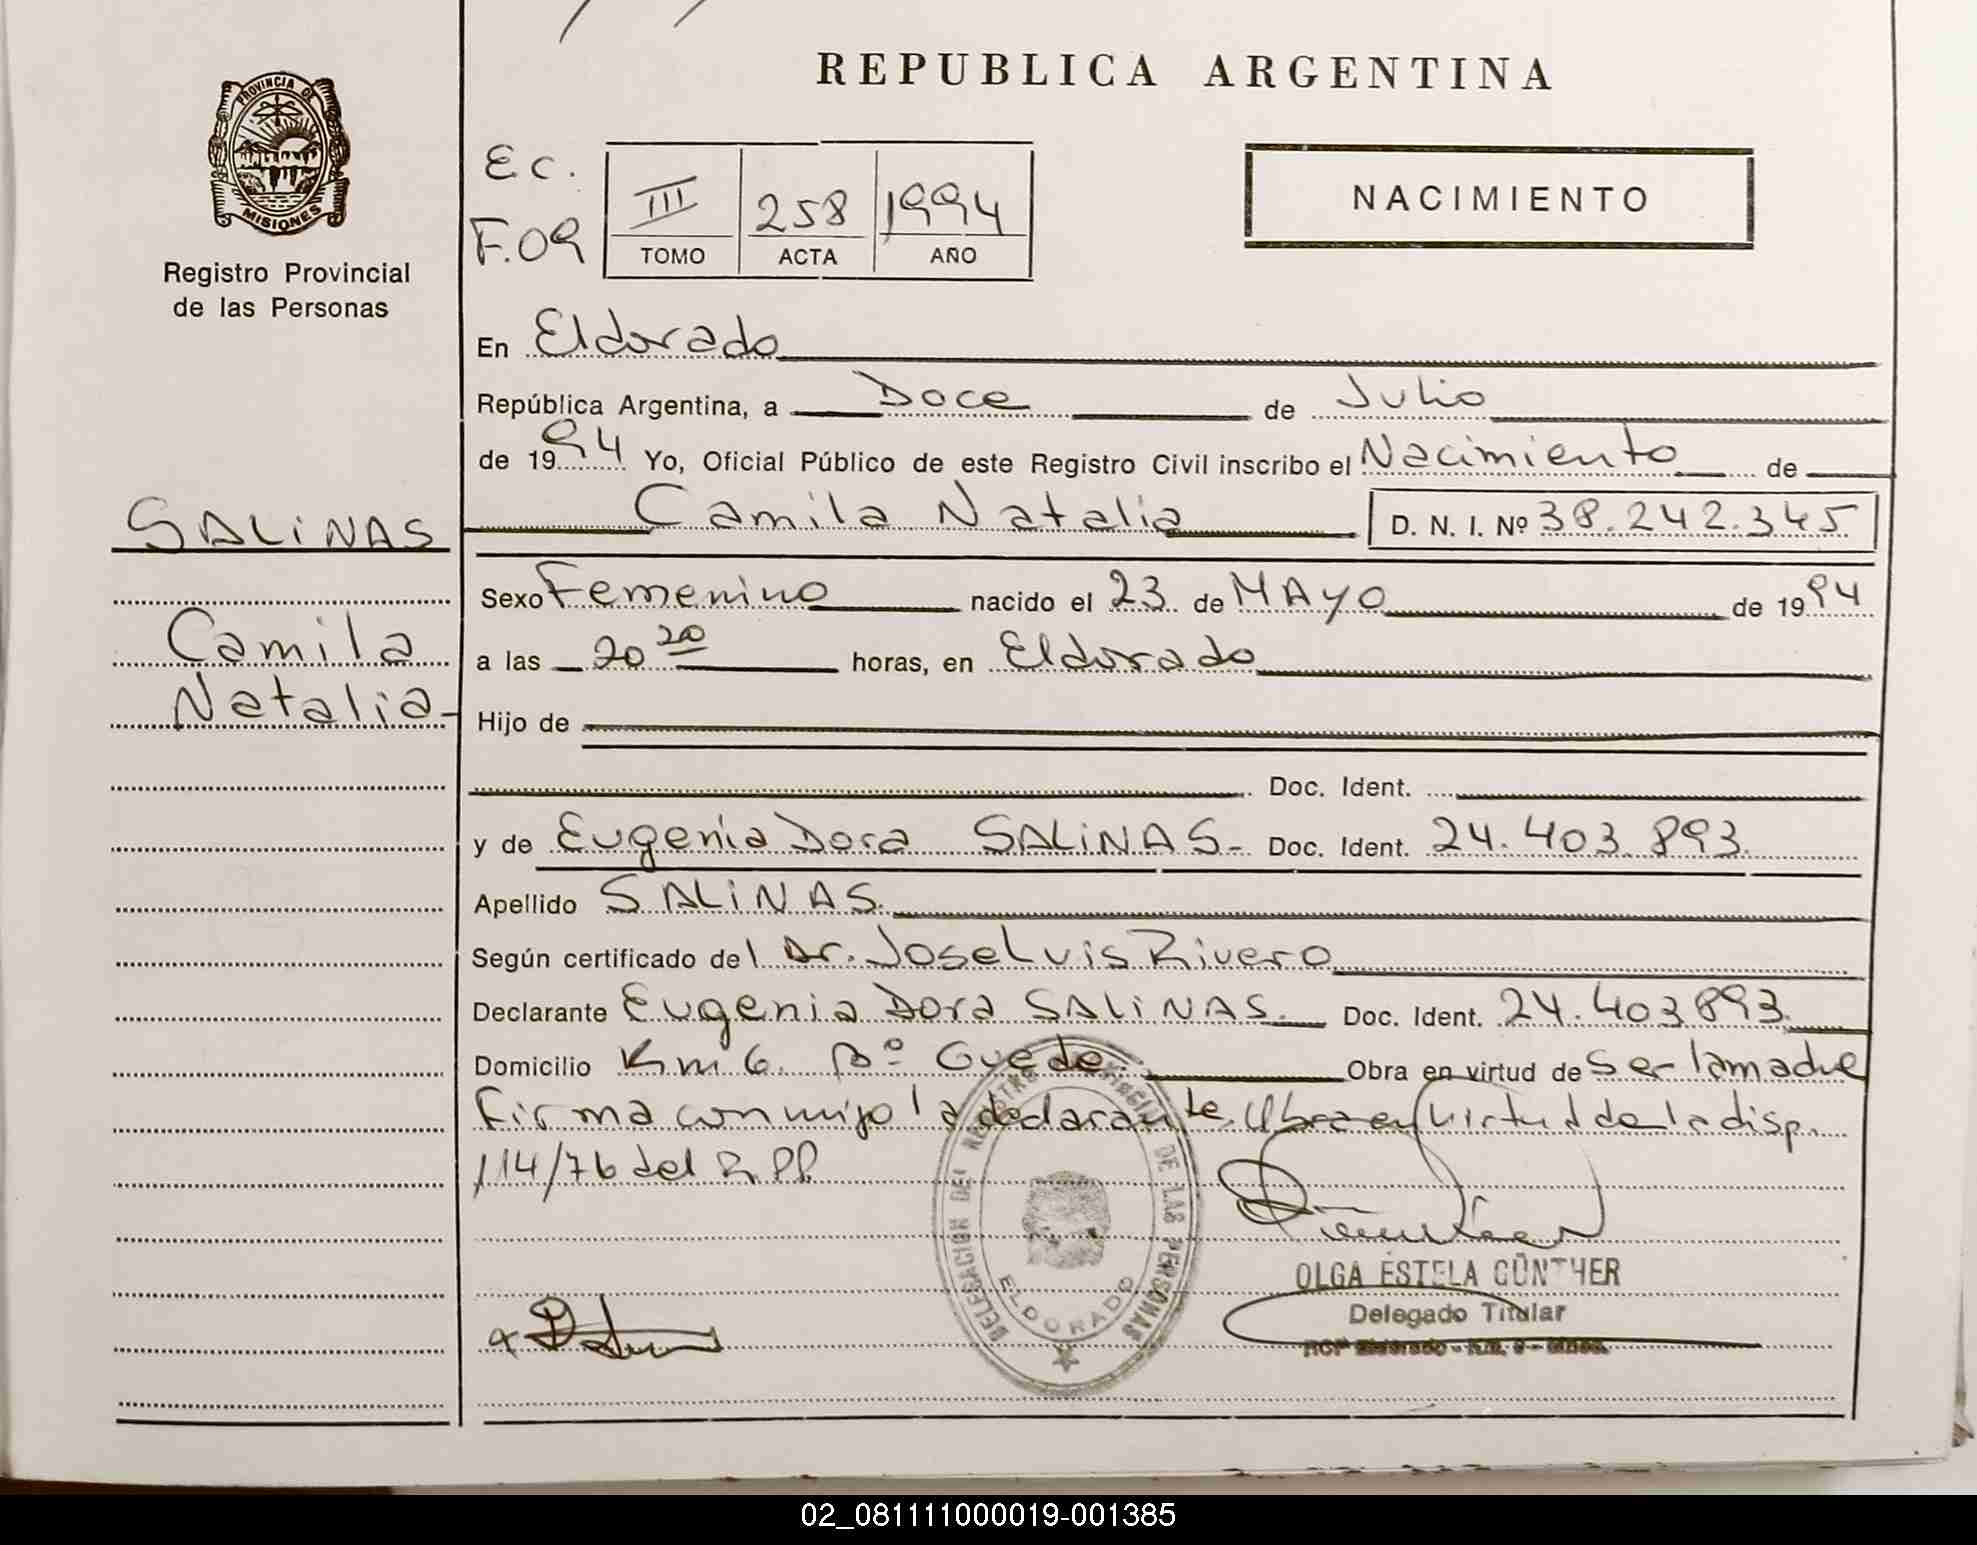 REPUBLICA ARGENTINA
PROVINCIA DE
MISIONES
Registro Provincial
de las Personas
Ec.
F.09
III 258 1994
TOMO ACTA AÑO
NACIMIENTO
En Eldorado
República Argentina, a Doce de Julio
de 1994 Yo, Oficial Público de este Registro Civil inscribo el Nacimiento de
SALINAS
Camila
Natalia
Camila Natalia D. N. I. Nº 38.242.345
Sexo Femenino nacido el 23 de MAYO de 1994
a las 20 20 horas, en Eldorado
Hijo de
Doc. Ident.
y de Eugenia Dora SALINAS- Doc. Ident. 24.403.893.
Apellido SALINAS.
Según certificado del Dr. Jose Luis Rivero
Declarante Eugenia Dora SALINAS. Doc. Ident. 24.403893.
Domicilio Km 6. Bº Guede. Obra en virtud de Ser la madre
Firma conmigo la declarante. Obra en virtud de la disp.
114/76 del R.PP.
DELEGACION DEL REGISTRO PROVINCIAL DE LAS PERSONAS
ELDORADO
OLGA ESTELA GÜNTHER
Delegado Titular
02_081111000019-001385